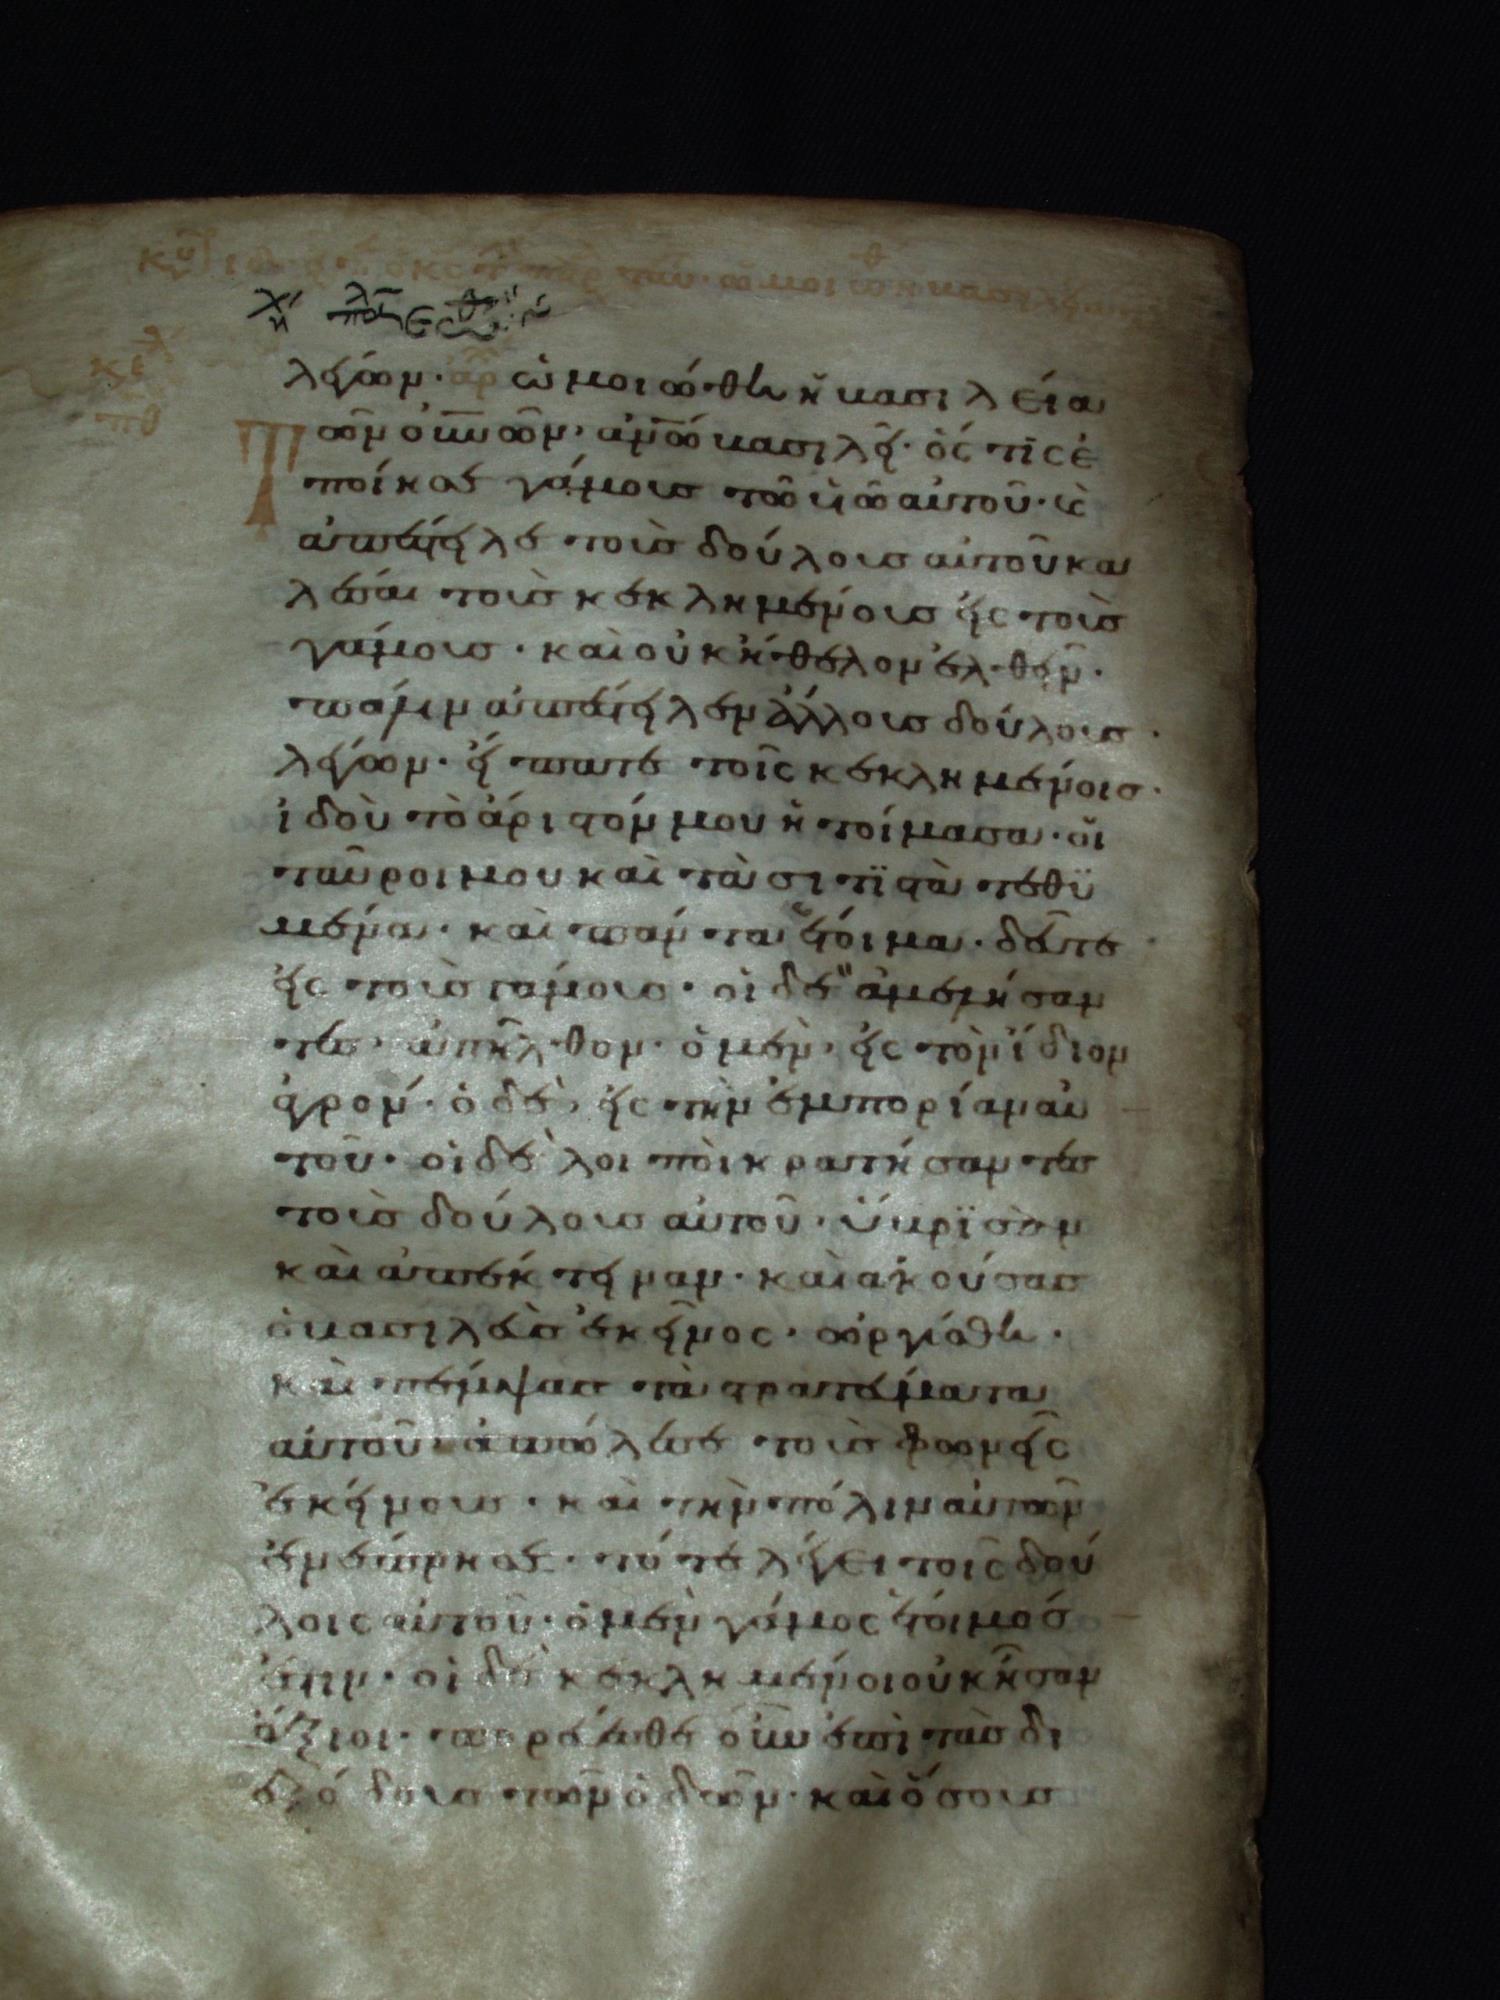 λέγων· ὡμοιώθη ἡ βασιλεία
τῶν οὐνῶν· ἀνω βασιλεῖ· ὅς τις ἐ
ποίησε γάμους τῶ υἱῶ αὐτοῦ· καὶ
ἀπέστειλε τοὺς δούλους αὐτοῦ κα
λέσαι τοὺς κεκλημένους εἰς τοὺς
γάμους· καὶ οὐκ ἤθελον ἐλθεῖν·
πάλιν ἀπέστειλεν ἄλλους δούλους·
λέγων· εἴπατε τοῖς κεκλημένοις·
ἰδοὺ τὸ ἄριστόν μου ἡτοίμασα· οἱ
ταῦροι μου καὶ τὰ σιτιστὰ τεθυ
μένα· καὶ πάντα ἕτοιμα· δεῦτε
εἰς τοὺς γάμους· οἱ δὲ ἀμελήσαν
τες· ἀπῆλθον· ὁ μὲν, εἰς τὸν ἴδιον
ἀγρόν· ὁ δὲ, εἰς τὴν ἐμπορίαν αὐ
τοῦ· οἱ δὲ λοιποὶ κρατήσαντες
τοὺς δούλους αὐτοῦ· ὕβρισαν
καὶ ἀπέκτειναν· καὶ ἀκούσας
ὁ βασιλεὺς ἐκεῖνος· ὠργίσθη·
καὶ πέμψας τὰ στρατεύματα
αὐτοῦ· ἀπώλεσε τοὺς φονεῖς
ἐκείνους· καὶ τὴν πόλιν αὐτῶν
ἐνέπρησε· τότε λέγει τοῖς δού
λοις αὐτοῦ· ὁ μὲν γάμος ἕτοιμός
ἐστιν· οἱ δὲ κεκλημένοι οὐκ ἦσαν
ἄξιοι· πορεύεσθε οὖν ἐπὶ τὰς δι
εξόδους τῶν ὁδῶν· καὶ ὅσους